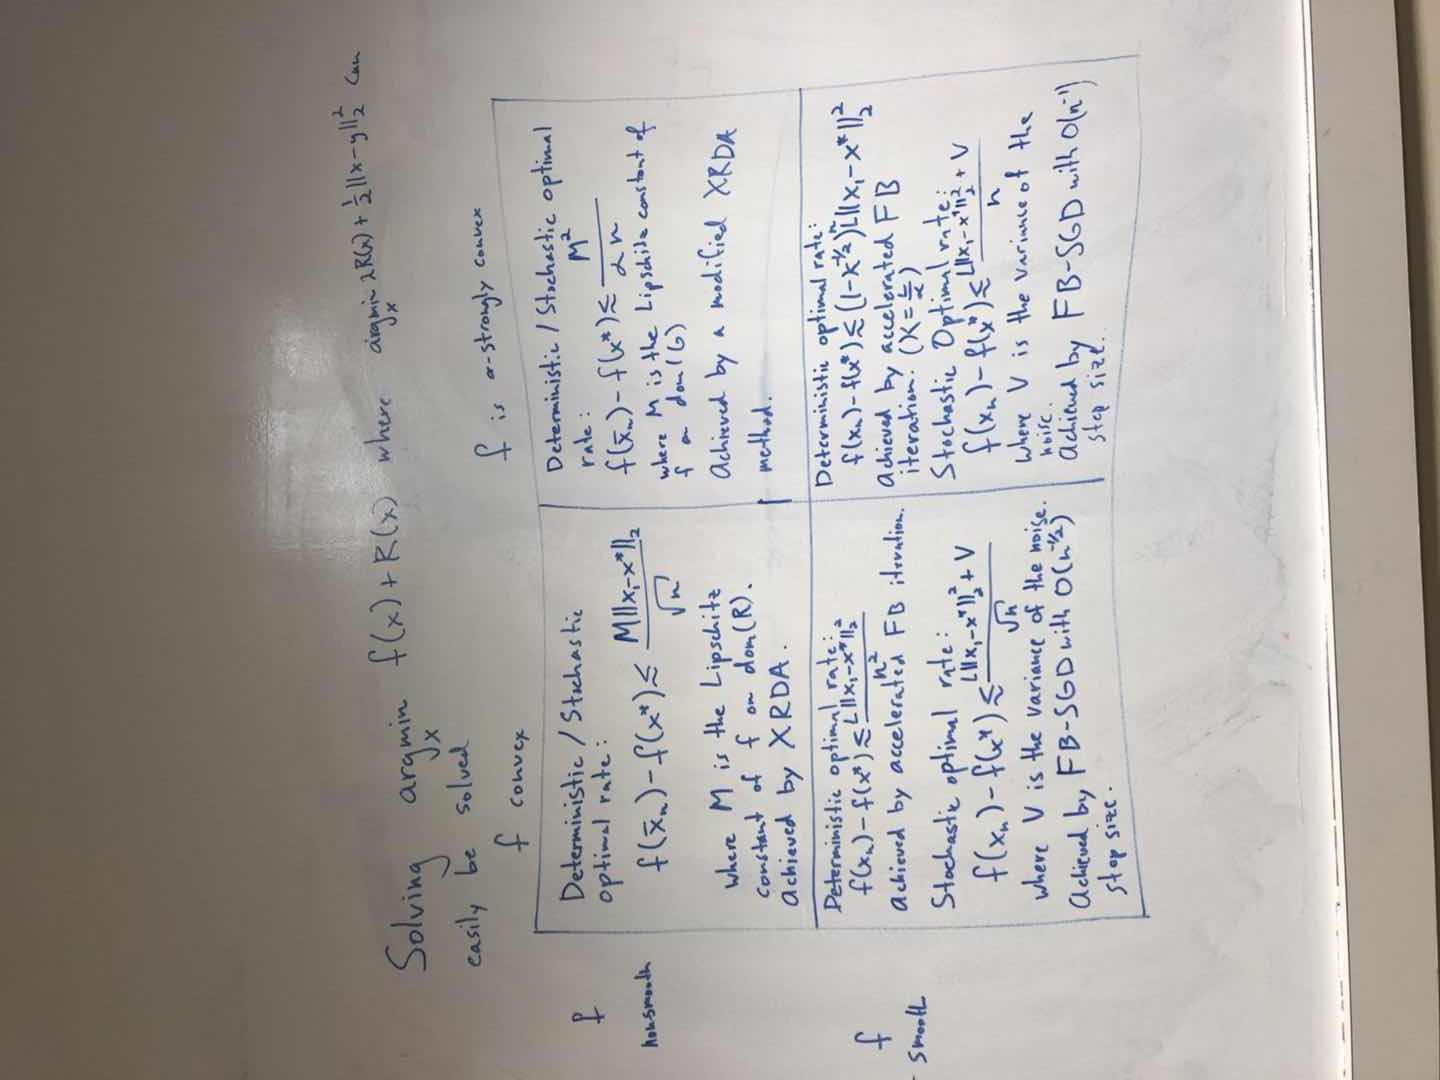 Solving argmin_x f(x) + R(x) where argmin_x λR(x) + ½||x-y||₂² can
easily be solved
f convex
f is α-strongly convex
f
nonsmooth
Deterministic / Stochastic
optimal rate:
f(x̄ₙ) - f(x*) ≲ M||x₁-x*||₂ / √n
where M is the Lipschitz
constant of f on dom(R).
achieved by XRDA.
Deterministic / Stochastic optimal
rate:
f(x̄ₙ) - f(x*) ≲ M² / αn
where M is the Lipschitz constant of
f on dom(G)
Achieved by a modified XRDA
method.
f
smooth
Deterministic optimal rate:
f(xₙ) - f(x*) ≲ L||x₁-x*||₂² / n²
achieved by accelerated FB iteration.
Stochastic optimal rate:
f(xₙ) - f(x*) ≲ L||x₁-x*||₂² + V / √n
where V is the variance of the noise.
Achieved by FB-SGD with O(n^-1/2)
step size.
Deterministic optimal rate:
f(xₙ) - f(x*) ≲ (1-K^-1/2)ⁿ L||x₁-x*||₂²
achieved by accelerated FB
iteration. (K = L/α)
Stochastic Optimal rate:
f(xₙ) - f(x*) ≲ L||x₁-x*||₂² + V / n
where V is the variance of the
noise.
Achieved by FB-SGD with O(n^-1)
step size.